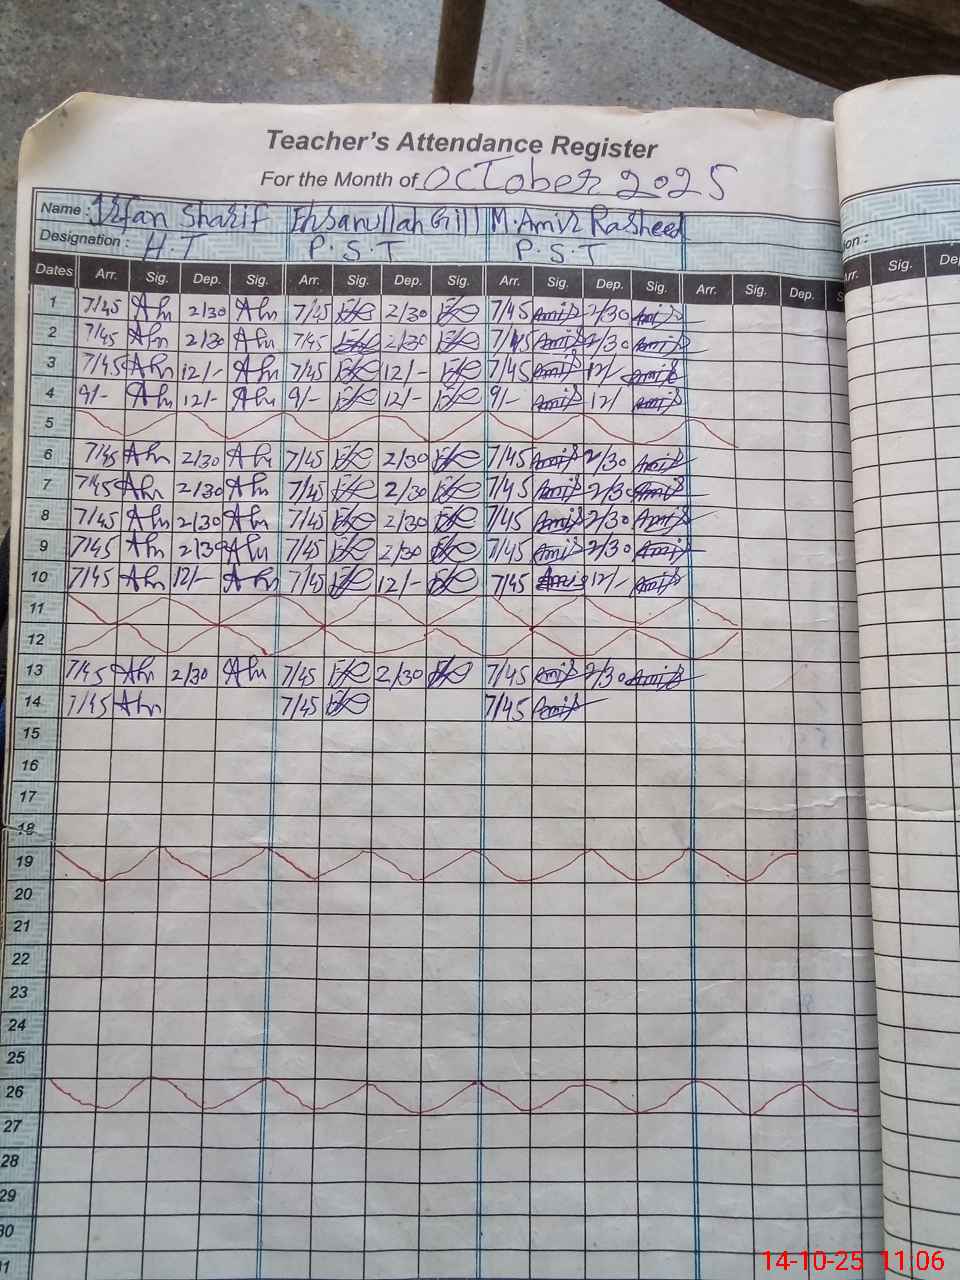 Teacher's Attendance Register
For the Month of October 2025
Name : Irfan Sharif Ehsanullah Gill M. Amir Rasheed
Designation : H.T P.S.T P.S.T
ion :
Dates Arr. Sig. Dep. Sig. Arr. Sig. Dep. Sig. Arr. Sig. Dep. Sig. Arr. Sig. Dep. S Arr. Sig. De
1 7/45 2/30 7/45 2/30 7/45 Amir 2/30 Amir
2 7/45 2/30 7/45 2/30 7/45 Amir 2/30 Amir
3 7/45 12/- 7/45 12/- 7/45 Amir 12/- Amir
4 9/- 12/- 9/- 12/- 9/- Amir 12/ Amir
5
6 7/45 2/30 7/45 2/30 7/45 Amir 2/30 Amir
7 7/45 2/30 7/45 2/30 7/45 Amir 2/30 Amir
8 7/45 2/30 7/45 2/30 7/45 Amir 2/30 Amir
9 7/45 2/30 7/45 2/30 7/45 Amir 2/30 Amir
10 7/45 12/- 7/45 12/- 7/45 Amir 12/- Amir
11
12
13 7/45 2/30 7/45 2/30 7/45 Amir 2/30 Amir
14 7/45 7/45 7/45 Amir
15
16
17
18
19
20
21
22
23
24
25
26
27
28
29
30
14-10-25 11:06